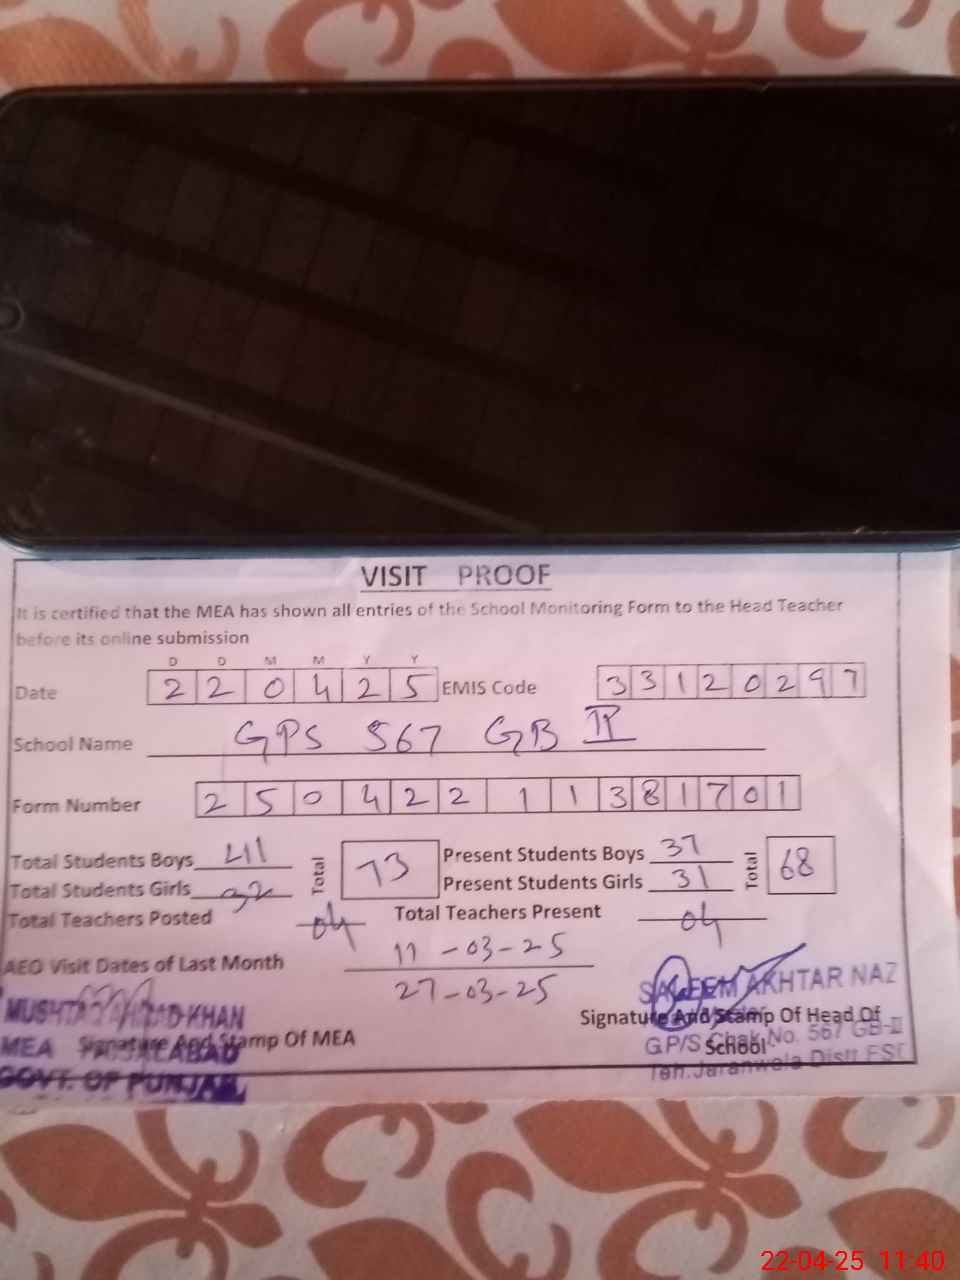 VISIT PROOF
It is certified that the MEA has shown all entries of the School Monitoring Form to the Head Teacher
before its online submission
D D M M Y Y
Date 2 2 0 4 2 5 EMIS Code 3 3 1 2 0 2 9 7
School Name GPS 567 GB II
Form Number 2 5 0 4 2 2 1 1 3 8 1 7 0 1
Total Students Boys 41 Total 73 Present Students Boys 37 Total 68
Total Students Girls 32 Present Students Girls 31
Total Teachers Posted 04 Total Teachers Present 04
AEO Visit Dates of Last Month 11-03-25
27-03-25
SALEEM AKHTAR NAZ
KHAN
Signature And Stamp Of Head Of
School
Signature And Stamp Of MEA
MEA FAISALABAD
G.P/S Chak No. 567 GB-II
GOVT. OF PUNJAB
Teh. Jaranwala Distt FSD
22-04-25 11:40